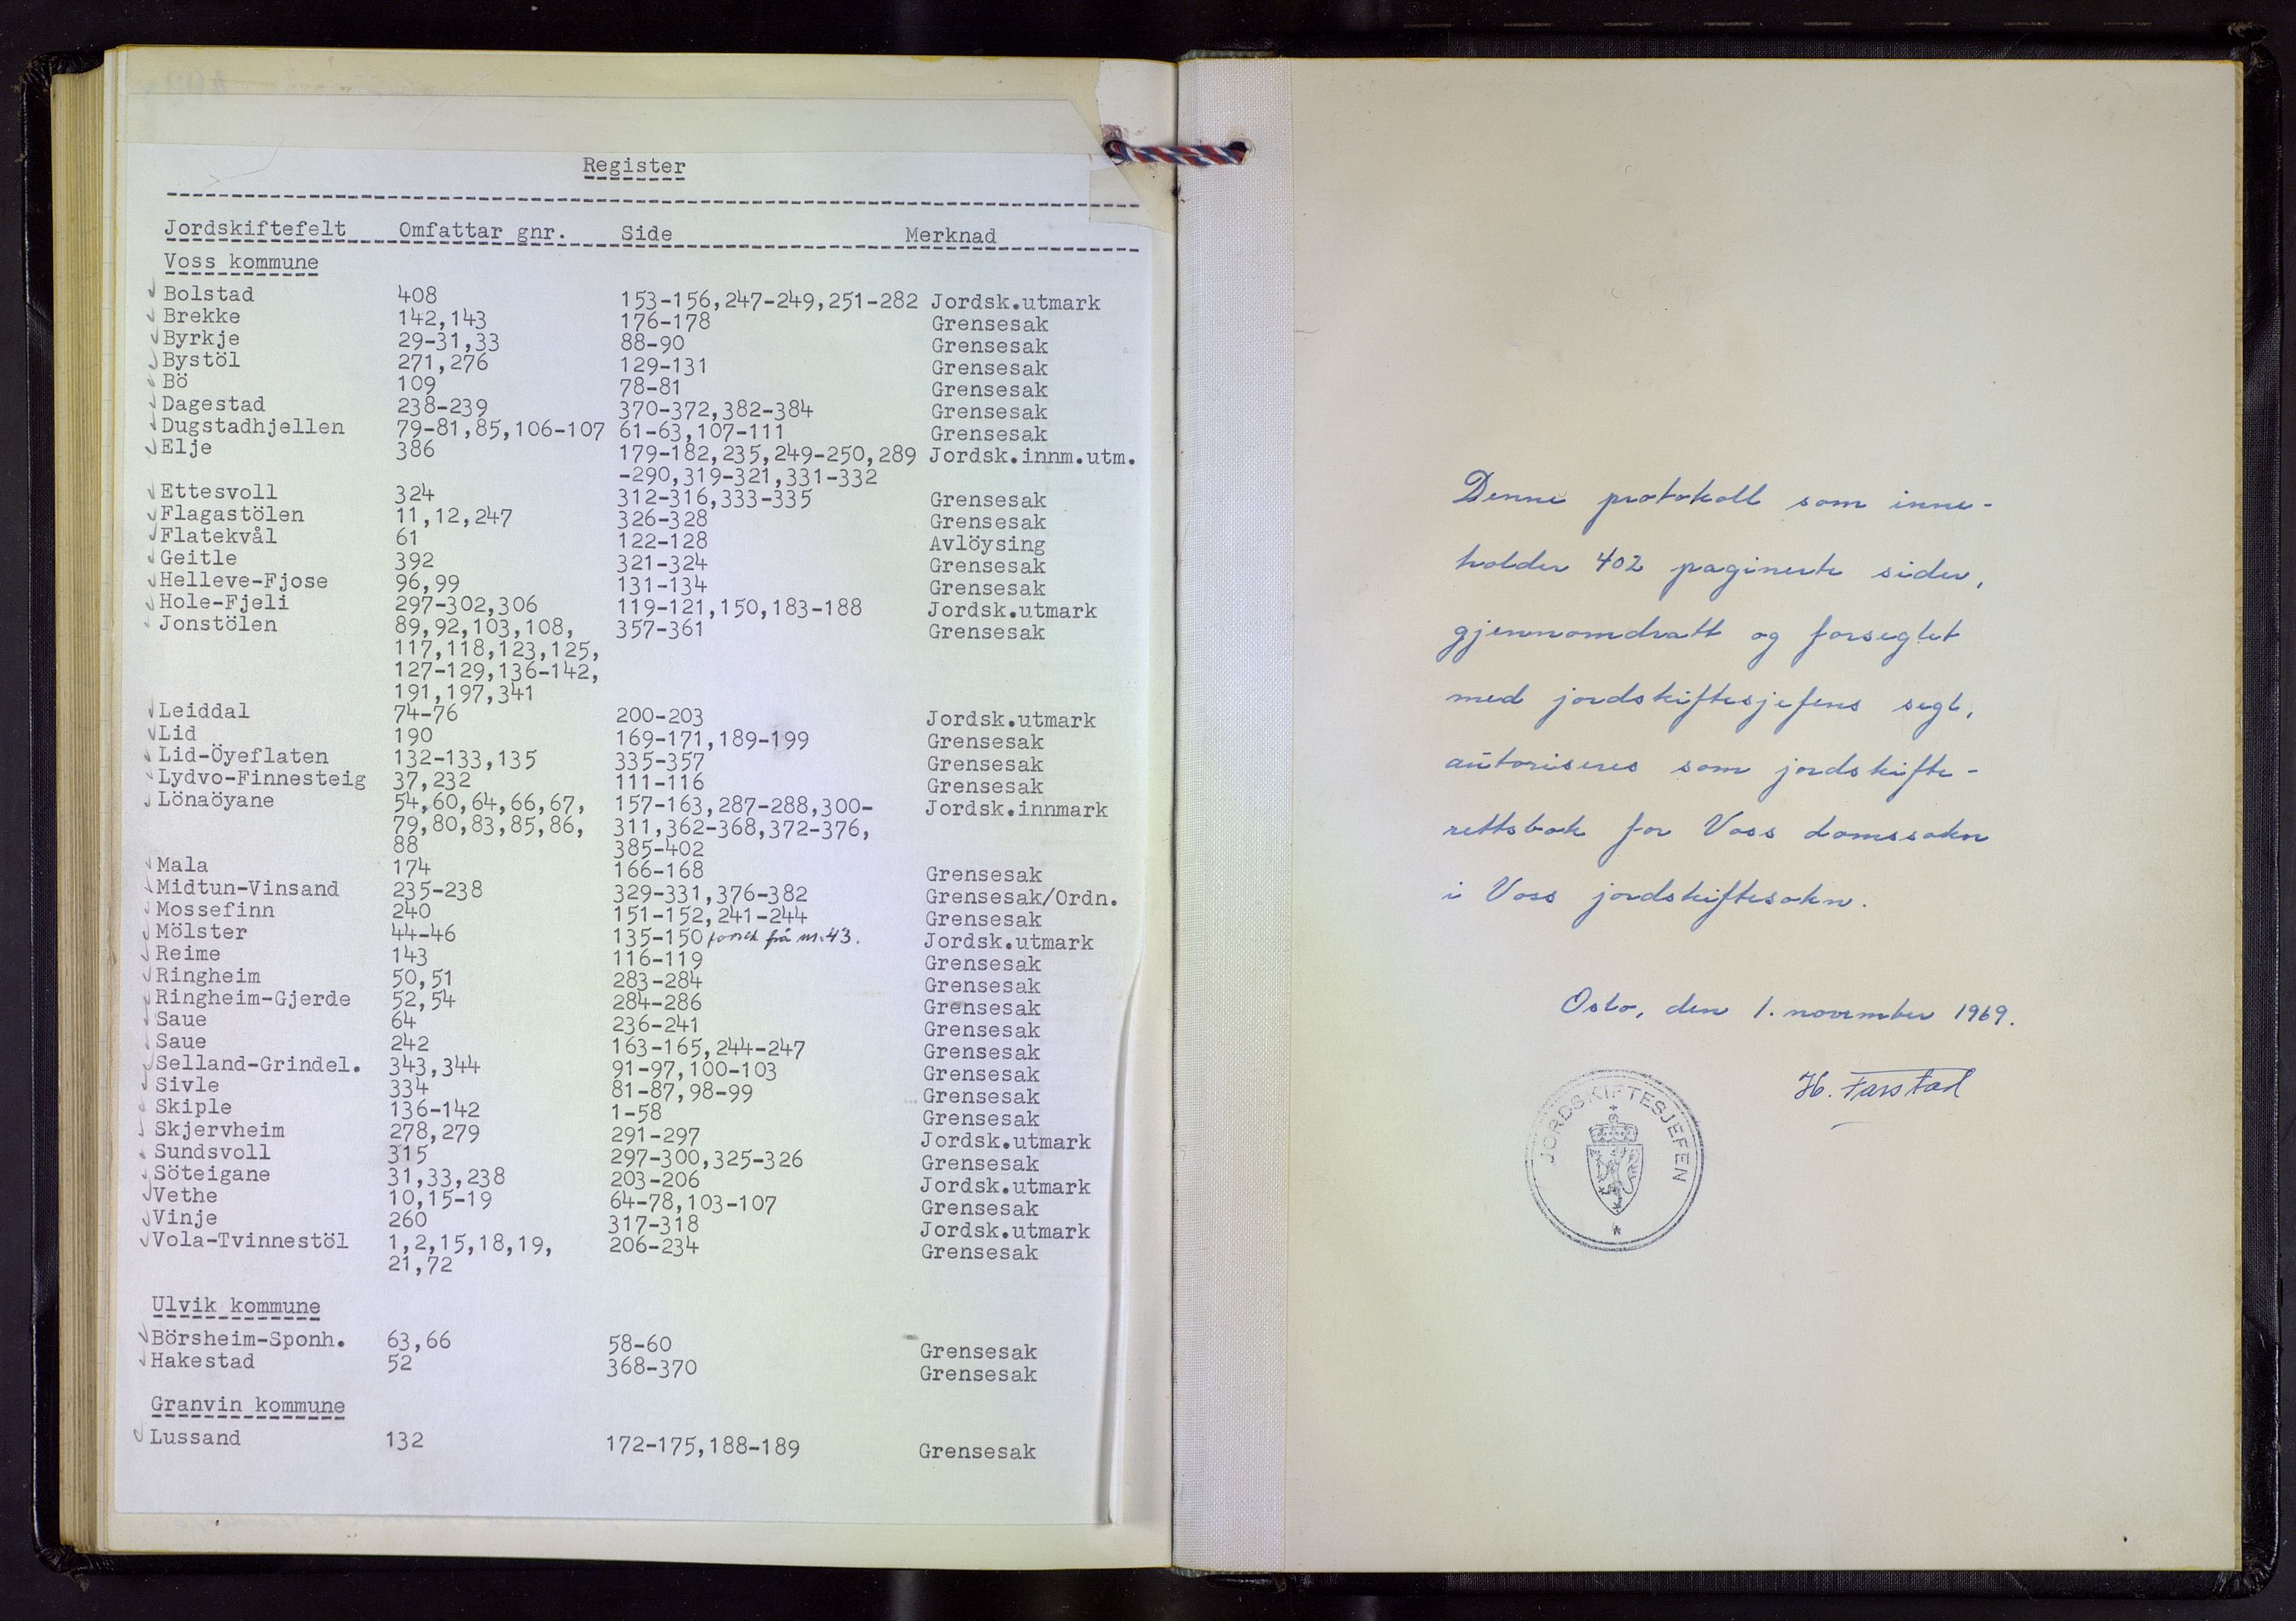 Register
Jordskiftefelt Omfattar gnr. Side Merknad
Voss kommune
Bolstad 408 153-156,247-249,251-282 Jordsk.utmark
Brekke 142,143 176-178 Grensesak
Byrkje 29-31,33 88-90 Grensesak
Bystöl 271,276 129-131 Grensesak
Bö 109 78-81 Grensesak
Dagestad 238-239 370-372,382-384 Grensesak
Dugstadhjellen 79-81,85,106-107 61-63,107-111 Grensesak
Elje 386 179-182,235,249-250,289 Jordsk.innm.utm.
-290,319-321,331-332
Ettesvoll 324 312-316,333-335 Grensesak
Flagastölen 11,12,247 326-328 Grensesak
Flatekvål 61 122-128 Avlöysing
Geitle 392 321-324 Grensesak
Helleve-Fjose 96,99 131-134 Grensesak
Hole-Fjeli 297-302,306 119-121,150,183-188 Jordsk.utmark
Jonstölen 89,92,103,108, 357-361 Grensesak
117,118,123,125,
127-129,136-142,
191,197,341
Leiddal 74-76 200-203 Jordsk.utmark
Lid 190 169-171,189-199 Grensesak
Lid-Öyeflaten 132-133,135 335-357 Grensesak
Lydvo-Finnesteig 37,232 111-116 Grensesak
Lönaöyane 54,60,64,66,67, 157-163,287-288,300- Jordsk.innmark
79,80,83,85,86, 311,362-368,372-376,
88 385-402
Mala 174 166-168 Grensesak
Midtun-Vinsand 235-238 329-331,376-382 Grensesak/Ordn.
Mossefinn 240 151-152,241-244 Grensesak
Mölster 44-46 135-150 frå nr. 43. Jordsk.utmark
Reime 143 116-119 Grensesak
Ringheim 50,51 283-284 Grensesak
Ringheim-Gjerde 52,54 284-286 Grensesak
Saue 64 236-241 Grensesak
Saue 242 163-165,244-247 Grensesak
Selland-Grindel. 343,344 91-97,100-103 Grensesak
Sivle 334 81-87,98-99 Grensesak
Skiple 136-142 1-58 Grensesak
Skjervheim 278,279 291-297 Jordsk.utmark
Sundsvoll 315 297-300,325-326 Grensesak
Söteigane 31,33,238 203-206 Jordsk.utmark
Vethe 10,15-19 64-78,103-107 Grensesak
Vinje 260 317-318 Jordsk.utmark
Vola-Tvinnestöl 1,2,15,18,19, 206-234 Grensesak
21,72
Ulvik kommune
Börsheim-Sponh. 63,66 58-60 Grensesak
Hakestad 52 368-370 Grensesak
Granvin kommune
Lussand 132 172-175,188-189 Grensesak
Denne protokoll som inne-
holder 402 paginerte sider,
gjennomdratt og forseglet
med jordskiftesjefens segl,
autoriseres som jordskifte-
rettsbok for Voss domssokn
i Voss jordskiftesokn.
Oslo, den 1. november 1969.
H. Farstad
JORDSKIFTESJEFEN